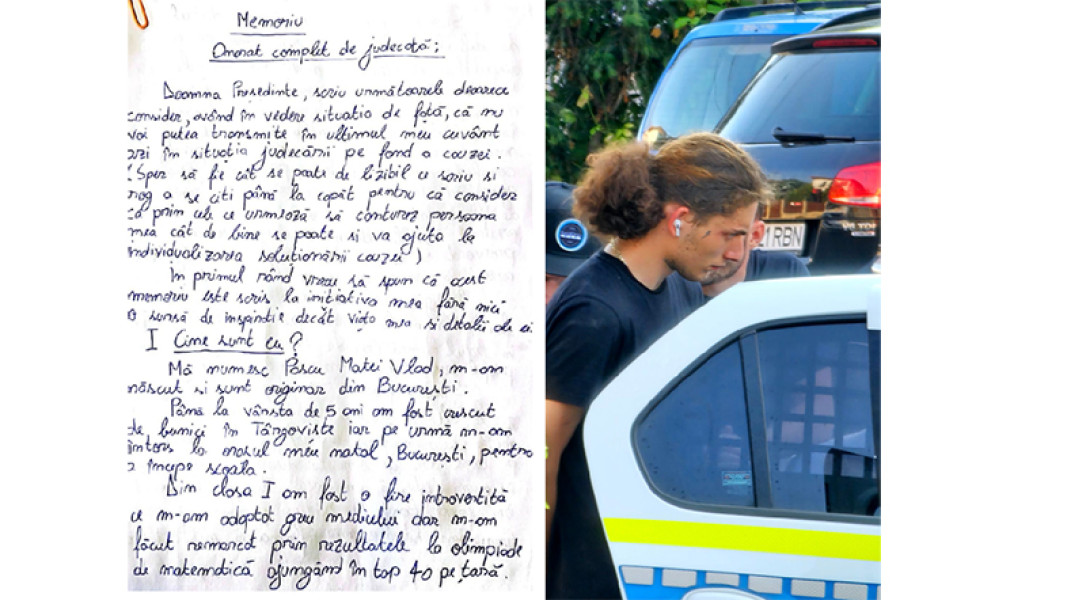 Memoriu
Onorat complet de judecată;
Doamna Președinte, scriu următoarele deoarece
consider, având în vedere situatia de față, că nu
voi putea transmite în ultimul meu cuvânt
în situația judecării pe fond a cauzei.
Sper să fie cât se poate de lizibil ce scriu si
rog a se citi până la capăt pentru că consider
că prin cele ce urmează să conturez persoana
mea cât de bine se poate si va ajuta la
individualizarea soluționării cauzei)
În primul rând vreau să spun că acest
memoriu este scris la initiativa mea fără nici
o sursă de inspiratie decât viața mea si detalii de ei
I Cine sunt eu?
Mă numesc Pascu Matei Vlad, m-am
născut si sunt originar din București.
Până la vârsta de 5 ani am fost crescut
de bunici în Târgoviste iar pe urmă m-am
întors la orasul meu natal, București, pentru
a începe scoala.
Din clasa I am fost o fire introvertită
ce m-am adaptat greu mediului dar m-am
făcut remarcat prin rezultatele la olimpiade
de matematică ajungând în top 40 pe țară.
RBN